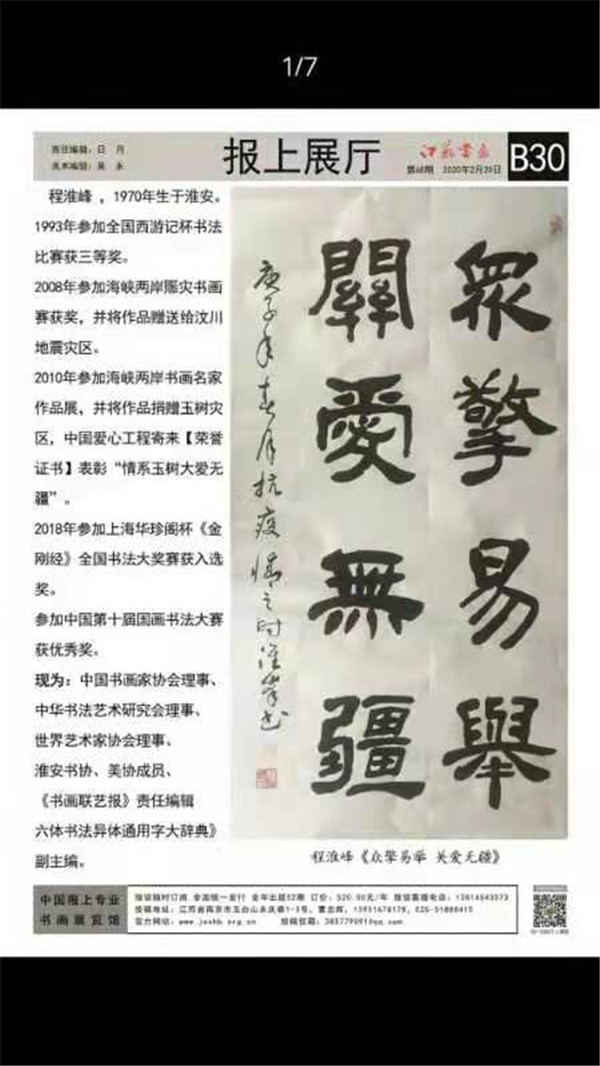 1/7
责任编辑：日 月
美术编辑：吴 永
报上展厅
江苏书画
第68期 2020年2月20日
B30
程淮峰，1970年生于淮安。
1993年参加全国西游记杯书法
比赛获三等奖。
2008年参加海峡两岸赈灾书画
赛获奖，并将作品赠送给汶川
地震灾区。
2010年参加海峡两岸书画名家
作品展，并将作品捐赠玉树灾
区，中国爱心工程寄来【荣誉
证书】表彰“情系玉树大爱无
疆”。
2018年参加上海华珍阁杯《金
刚经》全国书法大奖赛获入选
奖。
参加中国第十届国画书法大赛
获优秀奖。
现为：中国书画家协会理事、
中华书法艺术研究会理事、
世界艺术家协会理事、
淮安书协、美协成员、
《书画联艺报》责任编辑
六体书法异体通用字大辞典》
副主编。
眾擎易舉
關愛無疆
庚子年春月抗疫情之时淮峰书
程淮峰《众擎易举 关爱无疆》
中国报上专业
书画展览馆
微信随时订阅 全国统一发行 全年出版52期 订价：520.00元/年 微信客服电话：13814543573
投稿地址：江苏省南京市五台山永庆巷1-3号，曹志辉，13951678178，025-51888415
官方网站：www.jsshb.org.cn 投稿信箱：385779091@qq.com